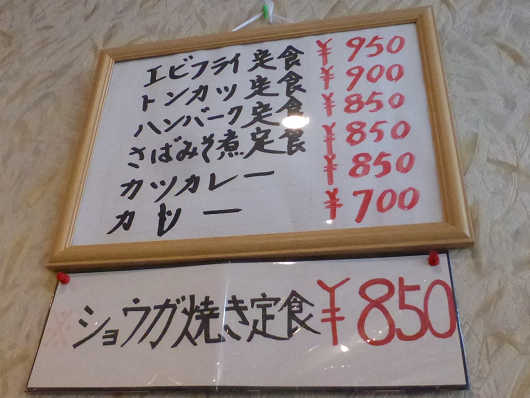 エビフライ定食 ¥950
トンカツ定食 ¥900
ハンバーク定食 ¥850
さばみそ煮定食 ¥850
カツカレー ¥850
カレー ¥700
ショウガ焼き定食 ¥850